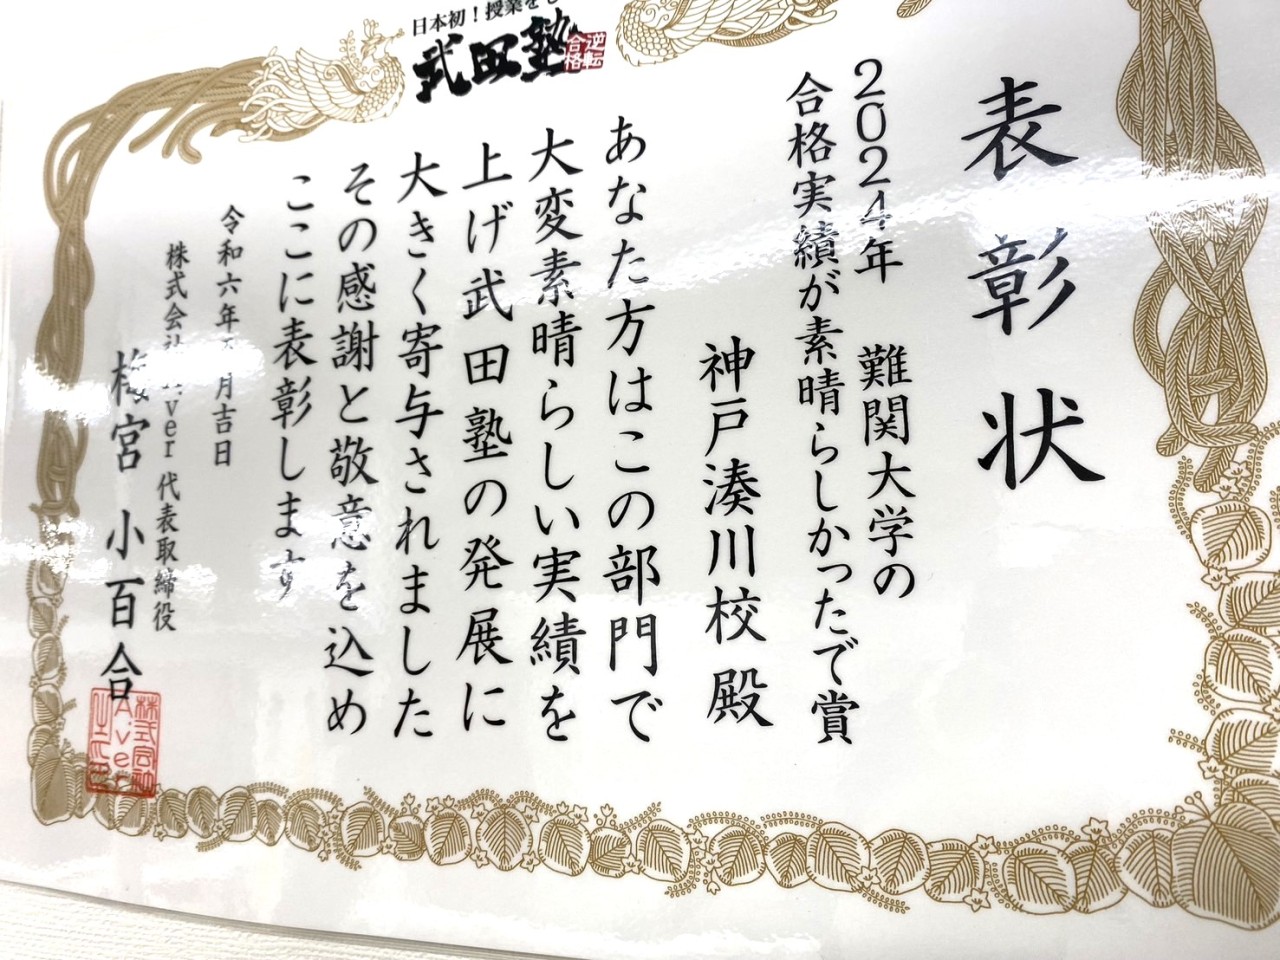 日本初！授業をし
武田塾
逆転
合格
表彰状
2024年 難関大学の
合格実績が素晴らしかったで賞
神戸湊川校 殿
あなた方はこの部門で
大変素晴らしい実績を
上げ武田塾の発展に
大きく寄与されました
その感謝と敬意を込め
ここに表彰します
令和六年 月吉日
株式会社 ver 代表取締役
梅宮 小百合
株式会社
A.ver
之印